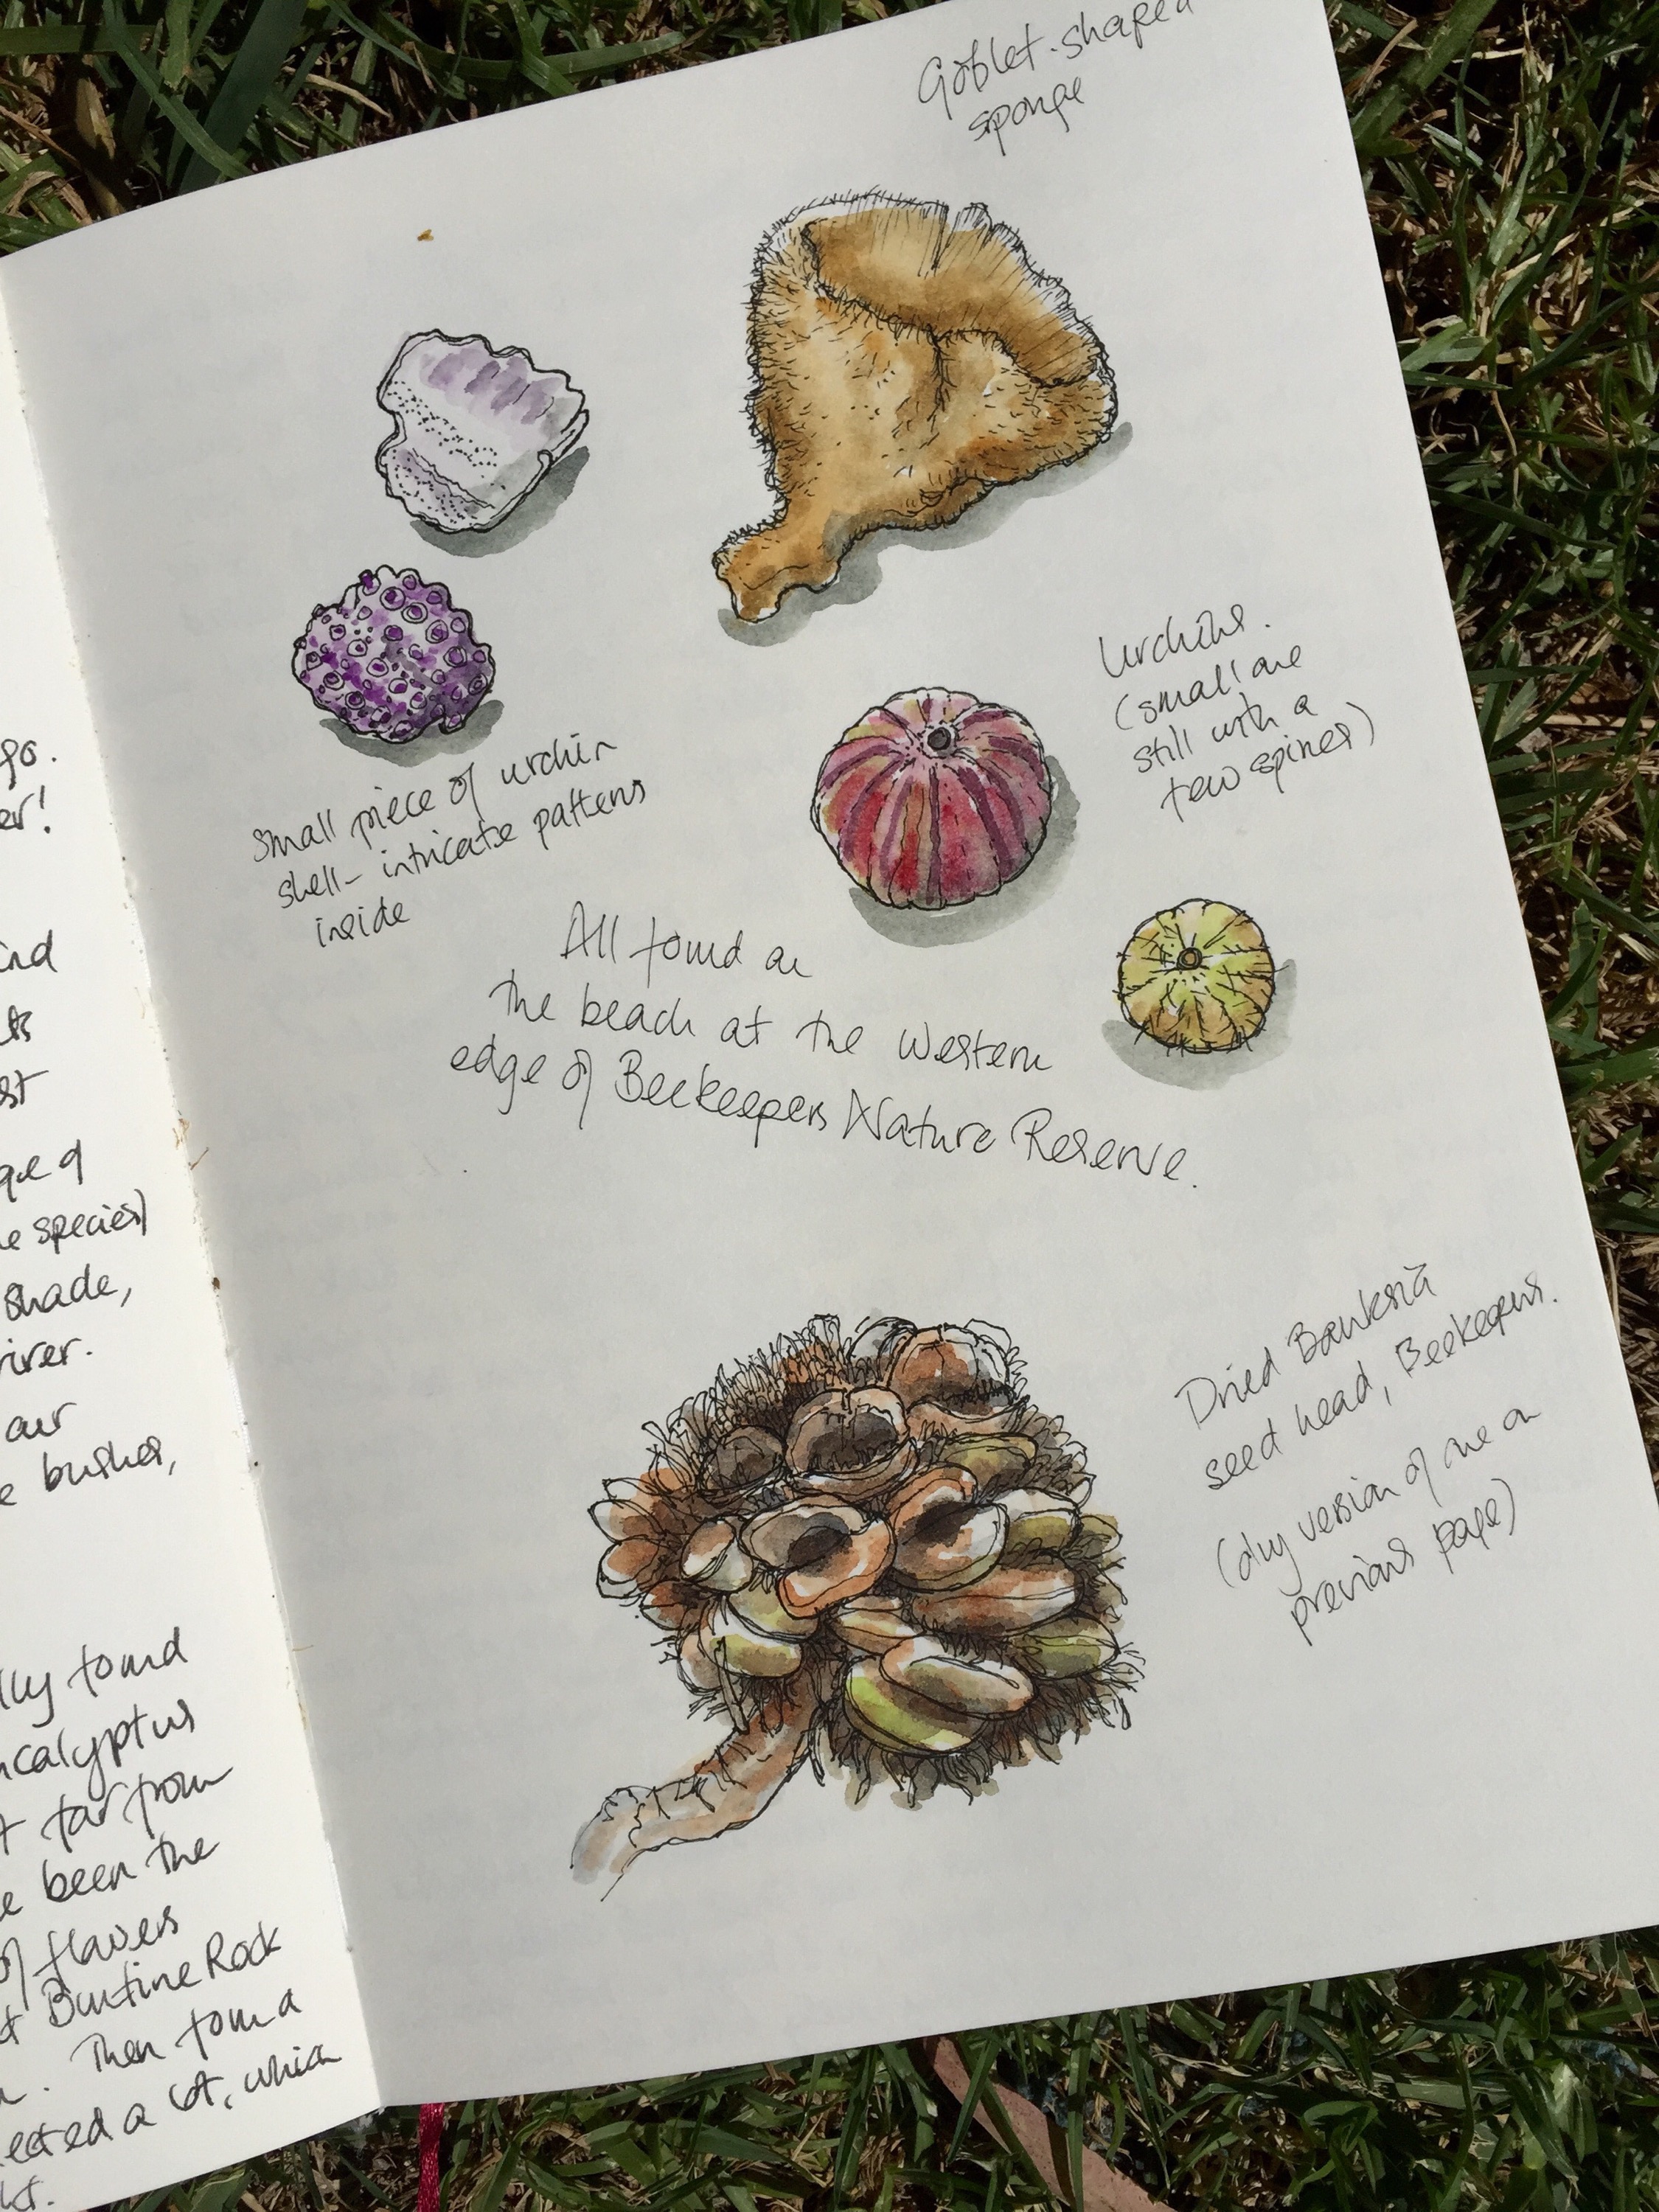 go.
er!
ind
ts
st
ge of
e species)
shade,
river.
our
e bushes,
lly found
ucalyptus
t far from
e been the
of flowers
t Buntine Rock
Then found a
ected a lot, which
kt.
Goblet-shaped
sponge
small piece of urchin
shell- intricate patterns
inside
Urchins.
(small one
still with a
few spines)
All found on
the beach at the Western
edge of Beekeepers Nature Reserve.
Dried Banksia
seed head, Beekeepers.
(dry version of one on
previous page)